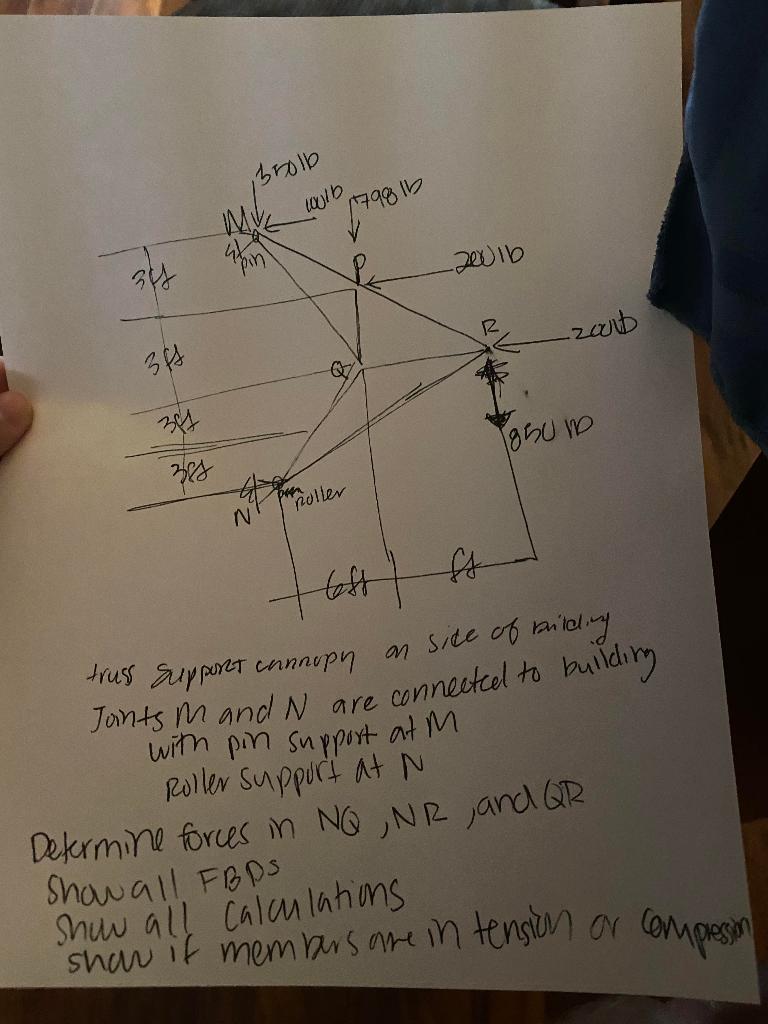 350lb
100lb
798lb
M
pin
P
200lb
3ft
R
200lb
3ft
Q
3ft
850lb
3ft
N
Roller
6ft
ft
truss support cannopy on side of building
Joints M and N are connected to building
with pin support at M
Roller support at N
Determine forces in NQ, NR, and QR
Show all FBDs
Show all Calculations
show if members are in tension or compression